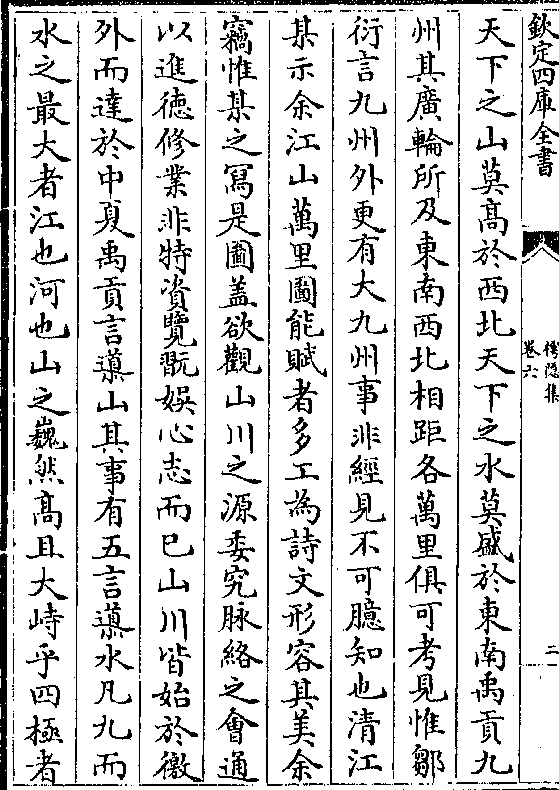 欽定四庫全書
樗隱集
卷六
二
天下之山莫髙於西北天下之水莫盛於東南禹貢九
州其廣輪所及東南西北相距各萬里俱可考見惟鄒
衍言九州外更有大九州事非經見不可臆知也清江
某示余江山萬里圗能賦者多工為詩文形容其美余
竊惟某之寫是圗盖欲觀山川之源委究脉絡之會通
以進徳修業非特資覽翫娯心志而已山川皆始於徼
外而達於中夏禹貢言導山其事有五言導水凡九而
水之最大者江也河也山之巍然髙且大峙乎四極者